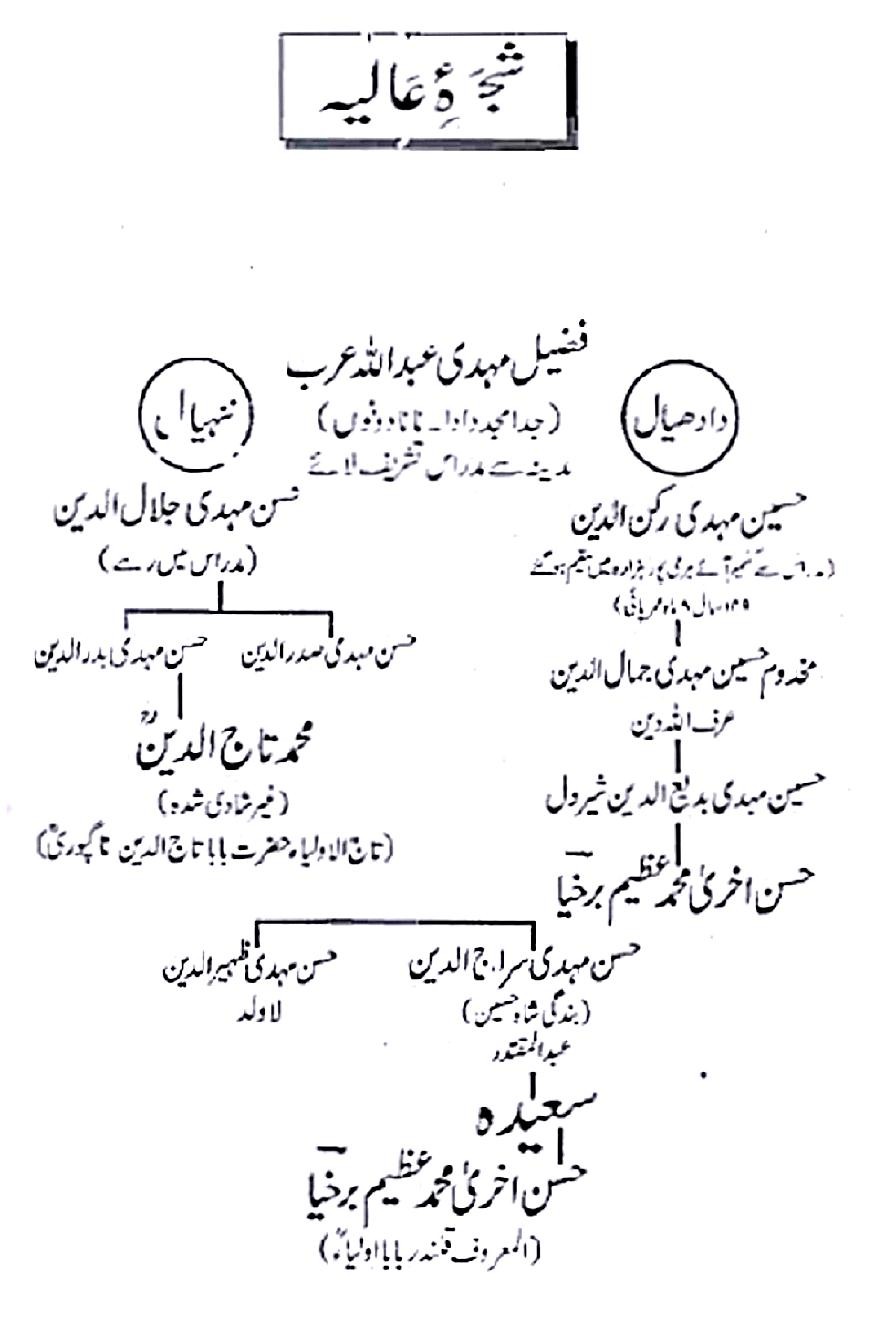 شجرۂ عالیہ
فضیل مہدی عبداللہ عرب
(جد امجد دادا۔ نانا دونوں)
مدینہ سے مدراس تشریف لائے
ددھیال
دادھیال
حسین مہدی رکن الدین
مقیم ہوگئے
مخدوم حسین مہدی جمال الدین
عرف اللہ دین
حسین مہدی بدیع الدین شیردل
حسن اخریٰ محمد عظیم برخیاؔ
ننہیال
حسن مہدی جلال الدین
(مدراس میں رہے)
حسن مہدی صدر الدین
حسن مہدی بدر الدین
محمد تاج الدینؒ
(غیر شادی شدہ)
(تاج الاولیاء حضرت بابا تاج الدین ناگپوریؒ)
حسن مہدی سراج الدین
(بندگی شاہ حسین)
عبدالمقتدر
حسن مہدی ظہیر الدین
لاولد
سعیدہ
حسن اخریٰ محمد عظیم برخیاؔ
(المعروف قلندر بابا اولیاءؒ)